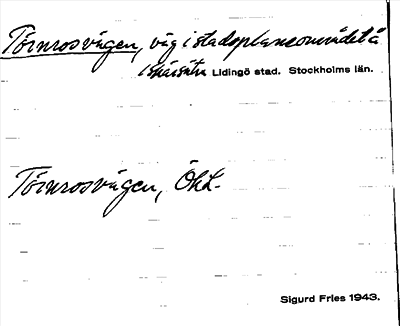 Törnrosvägen, väg i stadsplaneområdet å
Lidingö stad. Stockholms län.
Törnrosvägen, Öht.
Sigurd Fries 1943.